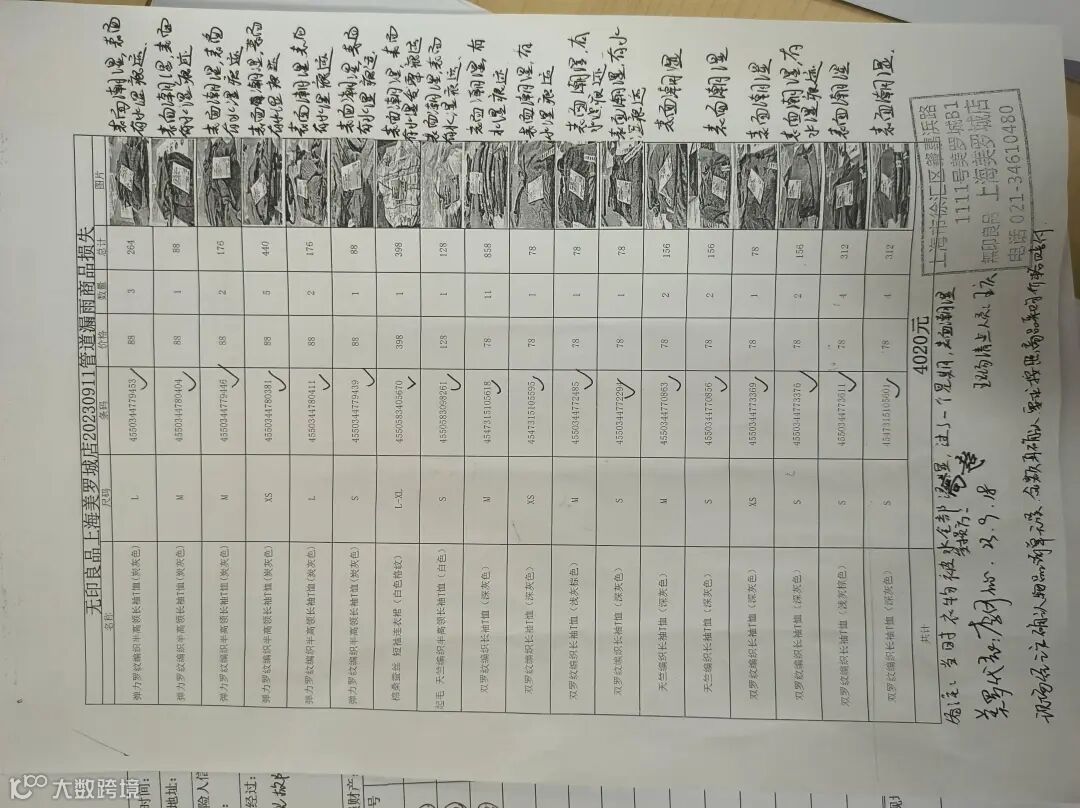 无印良品上海美罗城店20230911管道漏雨商品损失
名称 尺码 条码 价格 数量 总计 图片
弹力罗纹编织半高领长袖T恤(炭灰色) L 4550344779453 88 3 264 表面潮湿,表面有水渍痕迹
弹力罗纹编织半高领长袖T恤(炭灰色) M 4550344780404 88 1 88 表面潮湿,表面有水湿痕迹
弹力罗纹编织半高领长袖T恤(炭灰色) M 4550344779446 88 2 176 表面潮湿,表面有水渍痕迹
弹力罗纹编织半高领长袖T恤(炭灰色) XS 4550344780381 88 5 440 表面潮湿,表面有水渍痕迹
弹力罗纹编织半高领长袖T恤(炭灰色) L 4550344780411 88 2 176 表面潮湿,表面有水渍痕迹
弹力罗纹编织半高领长袖T恤(炭灰色) S 4550344779439 88 1 88 表面潮湿,表面有水渍痕迹
棉桑蚕丝 短袖连衣裙(白色格纹) L-XL 4550583405670 398 1 398 表面潮湿,表面
起毛 天竺编织半高领长袖T恤(白色) S 4550583098261 128 1 128 表面潮湿,表面有水渍痕迹
双罗纹编织长袖T恤(深灰色) M 4547315105618 78 11 858 表面潮湿,有水渍痕迹
双罗纹编织长袖T恤(深灰色) XS 4547315105595 78 1 78 表面潮湿,有水渍痕迹
双罗纹编织长袖T恤(浅灰棕色) M 4550344772485 78 1 78 表面潮湿,有水渍痕迹
双罗纹编织长袖T恤(深灰色) S 78 1 78 表面潮湿,有水渍痕迹
天竺编织长袖T恤(深灰色) M 4550344770863 78 2 156 表面潮湿
天竺编织长袖T恤(深灰色) S 4550344770856 78 2 156 表面潮湿
双罗纹编织长袖T恤(深灰色) XS 4550344773369 78 1 78 表面潮湿
双罗纹编织长袖T恤(深灰色) S 4550344773376 78 2 156 表面潮湿,有水渍痕迹
双罗纹编织长袖T恤(浅灰棕色) S 4550344773611 78 4 312 表面潮湿
双罗纹编织长袖T恤(深灰色) S 4547315105601 78 4 312 表面潮湿.
共计 4020元
上海市徐汇区肇嘉浜路
1111号美罗城B1
無印良品 上海美罗城店
电话 021-34610480
备注:当时衣物被水全部浸湿,过了一个星期,表面潮湿
美罗代表: 23.9.18
现场清点人员:
时间:
地址:
险人信
经过:
财产
号
大数跨境